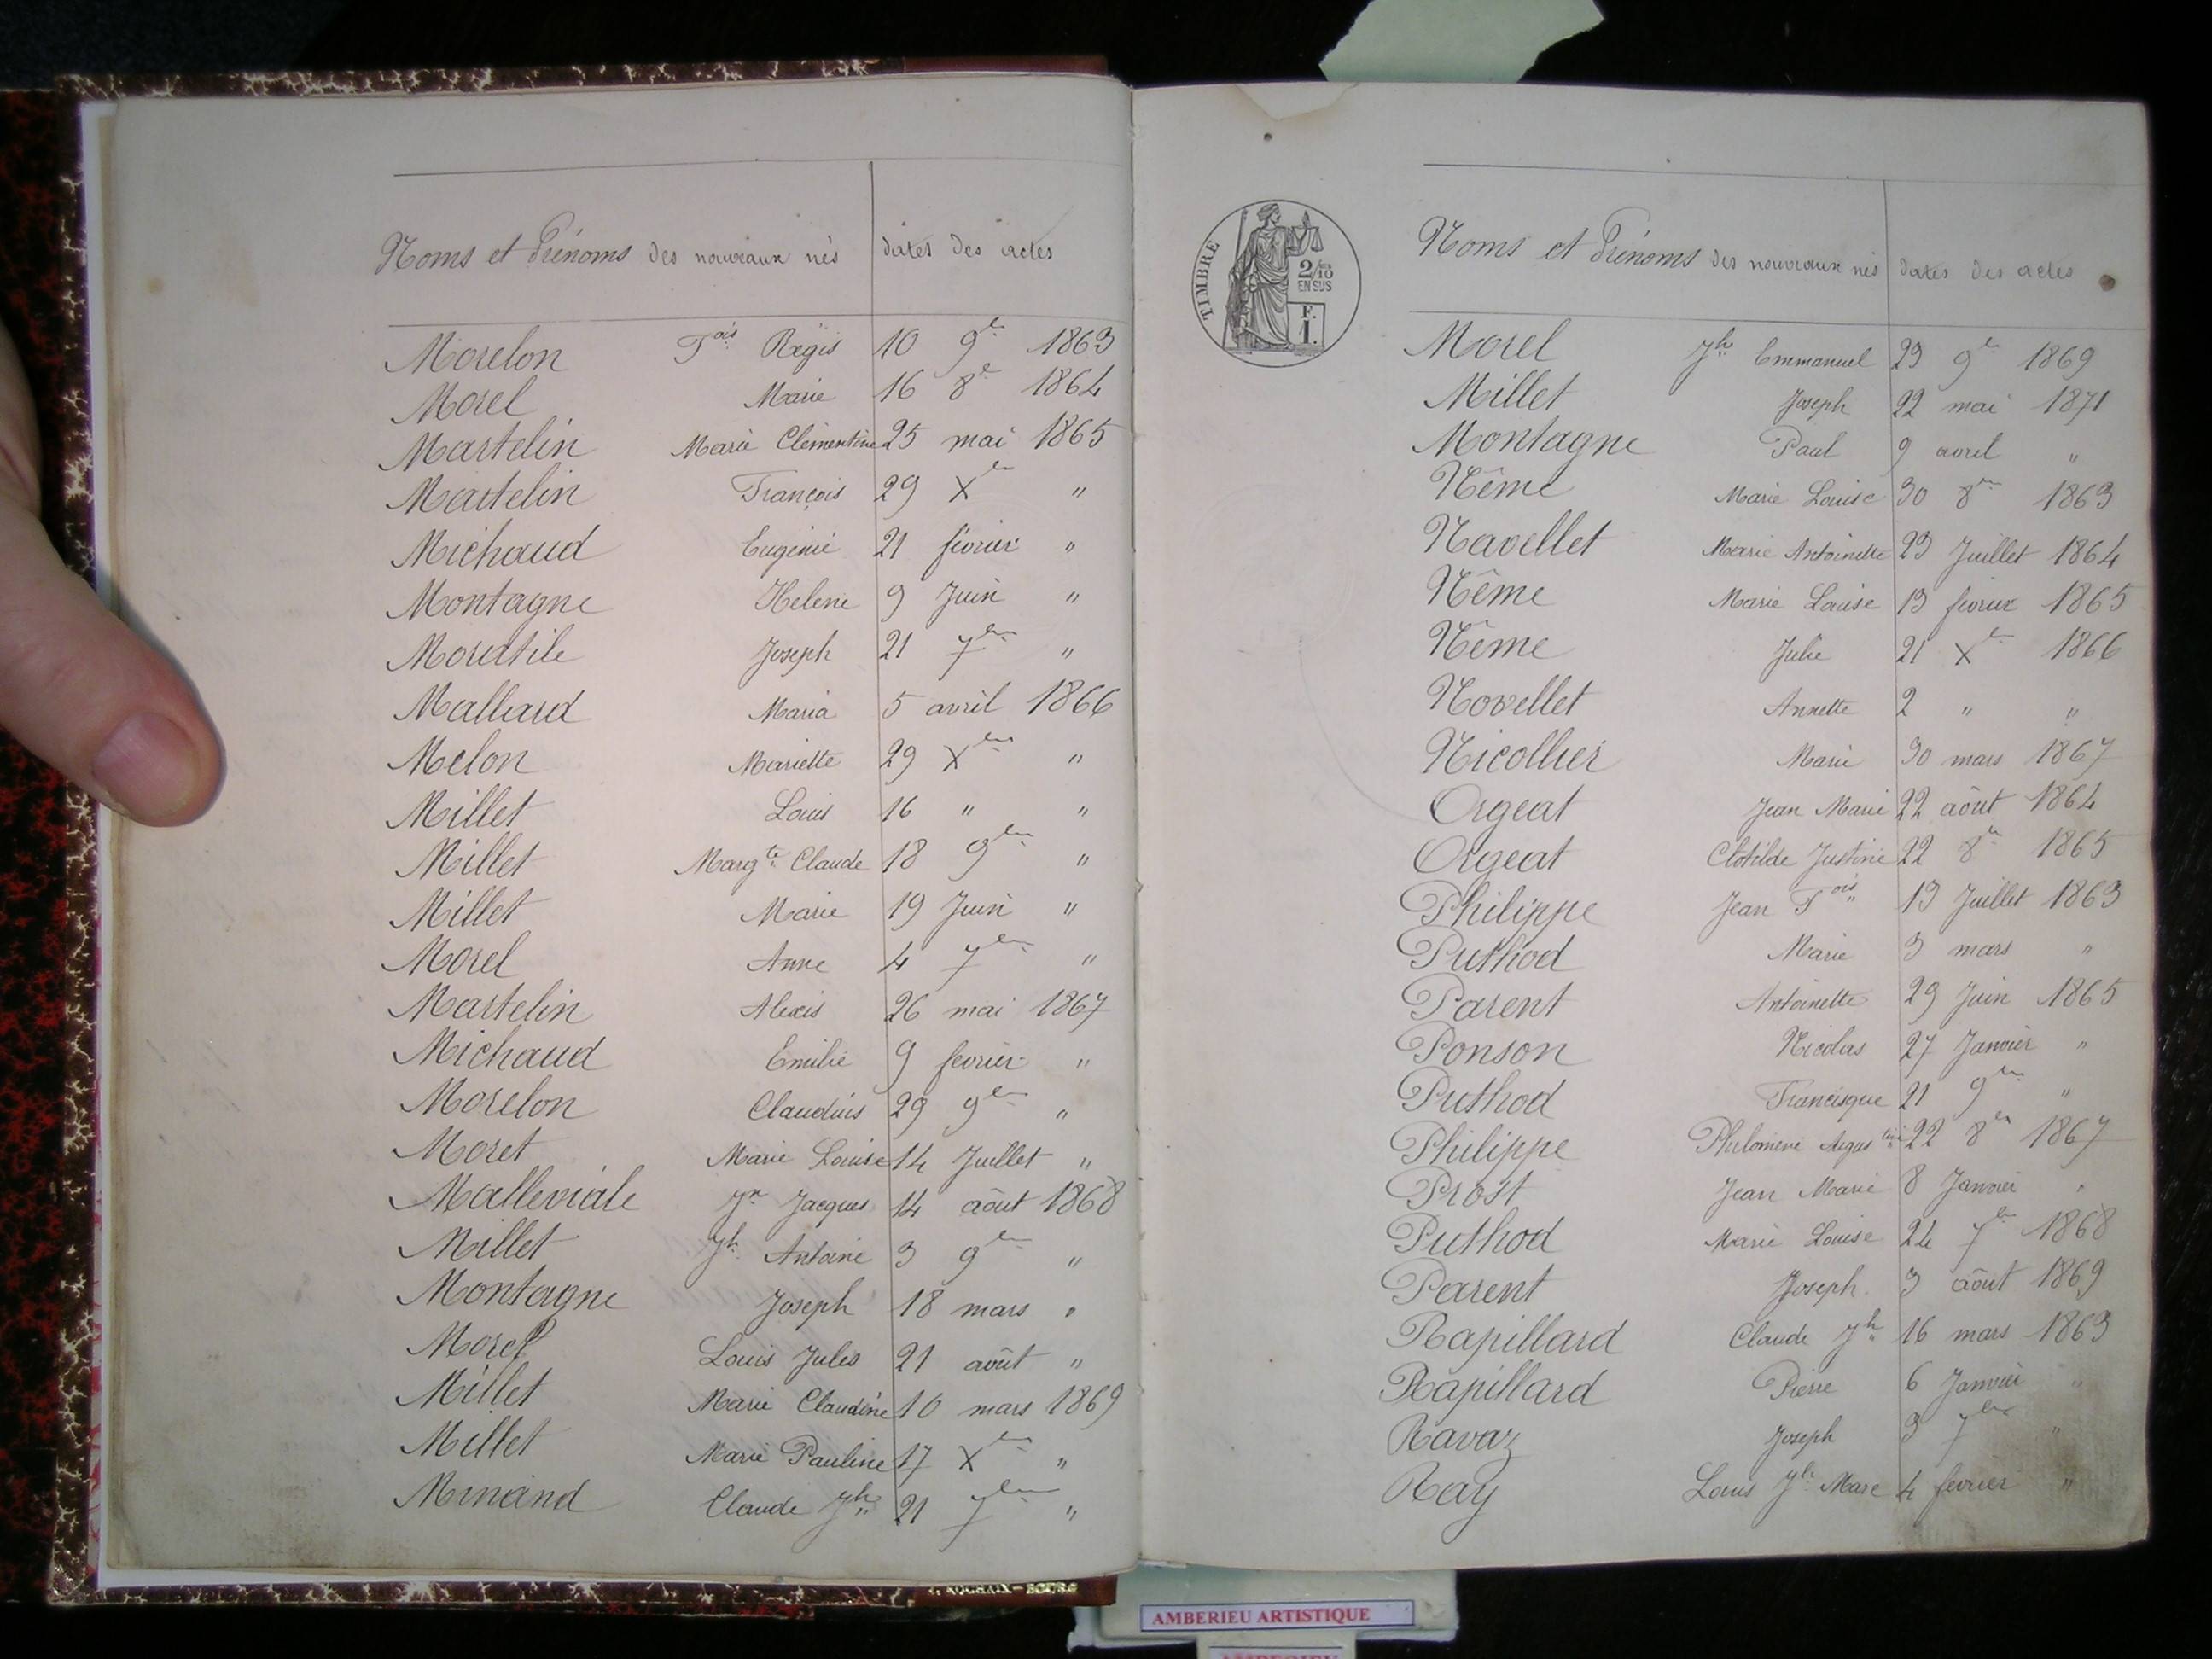 Noms et Prénoms des nouveaux nés dates des actes
Morelon Fois Régis 10 9e 1863
Morel Marie 16 8e 1864
Martelin Marie Clémentine 25 mai 1865
Martelin François 29 Xe "
Michaud Eugénie 21 février "
Montagne Helene 9 Juin "
Joseph 21 7bre "
Mallard Maria 5 avril 1866
Melon Mariette 29 Xbre "
Millet Louis 16 " "
Millet Margte Claude 18 9bre "
Millet Marie 19 Juin "
Morel Anne 4 7bre "
Martelin Alexis 26 mai 1867
Michaud Emilie 9 fevrier "
Morelon Claudius 29 9bre "
Moret Marie Louise 14 Juillet "
Malleviale Jn Jacques 14 août 1868
Millet Jh Antoine 3 9bre "
Montagne Joseph 18 mars "
Morel Louis Jules 21 août "
Millet Marie Claudine 10 mars 1869
Millet Marie Pauline 17 Xbre "
Claude Jh 21 7bre "
TIMBRE
2/10
EN SUS
F.
1.
Noms et Prénoms des nouveaux nés dates des actes
Morel Jh Emmanuel 23 9e 1869
Millet Joseph 22 mai 1871
Montagne Paul 9 avril "
Nême Marie Louise 30 8bre 1863
Navellet Marie Antoinette 23 Juillet 1864
Nême Marie Louise 13 février 1865
Nême Julie 21 Xe 1866
Novellet Annette 2 " "
Nicollier Marie 30 mars 1867
Orgeat Jean Marie 22 août 1864
Orgeat Clotilde Justine 22 8bre 1865
Philippe Jean Fois 13 Juillet 1863
Puthod Marie 3 mars "
Parent Antoinette 29 Juin 1865
Ponson Nicolas 27 Janvier "
Puthod Francisque 21 9bre "
Philippe Philomene 22 8bre 1867
Prost Jean Marie 8 Janvier "
Puthod Marie Louise 24 7bre 1868
Parent Joseph 3 août 1869
Rapillard Claude Jh 16 mars 1863
Rapillard Pierre 6 Janvier "
Ravaz Joseph 3 7bre "
Ray Louis Jh Marc 4 fevrier "
AMBERIEU ARTISTIQUE